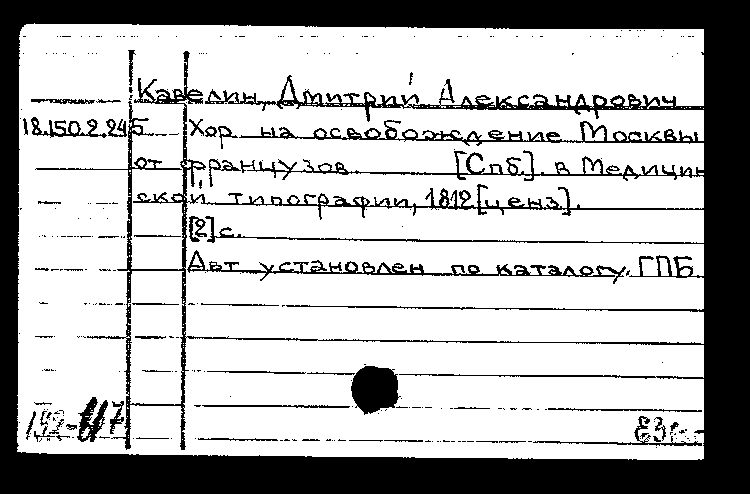 Кавелин, Дмитрий Александрович
18.150.2.245 Хор на освобождение Москвы
от французов. [Спб]. в Медицин
ской типографии, 1812 [ценз].
[2] с.
Авт установлен по каталогу. ГПБ